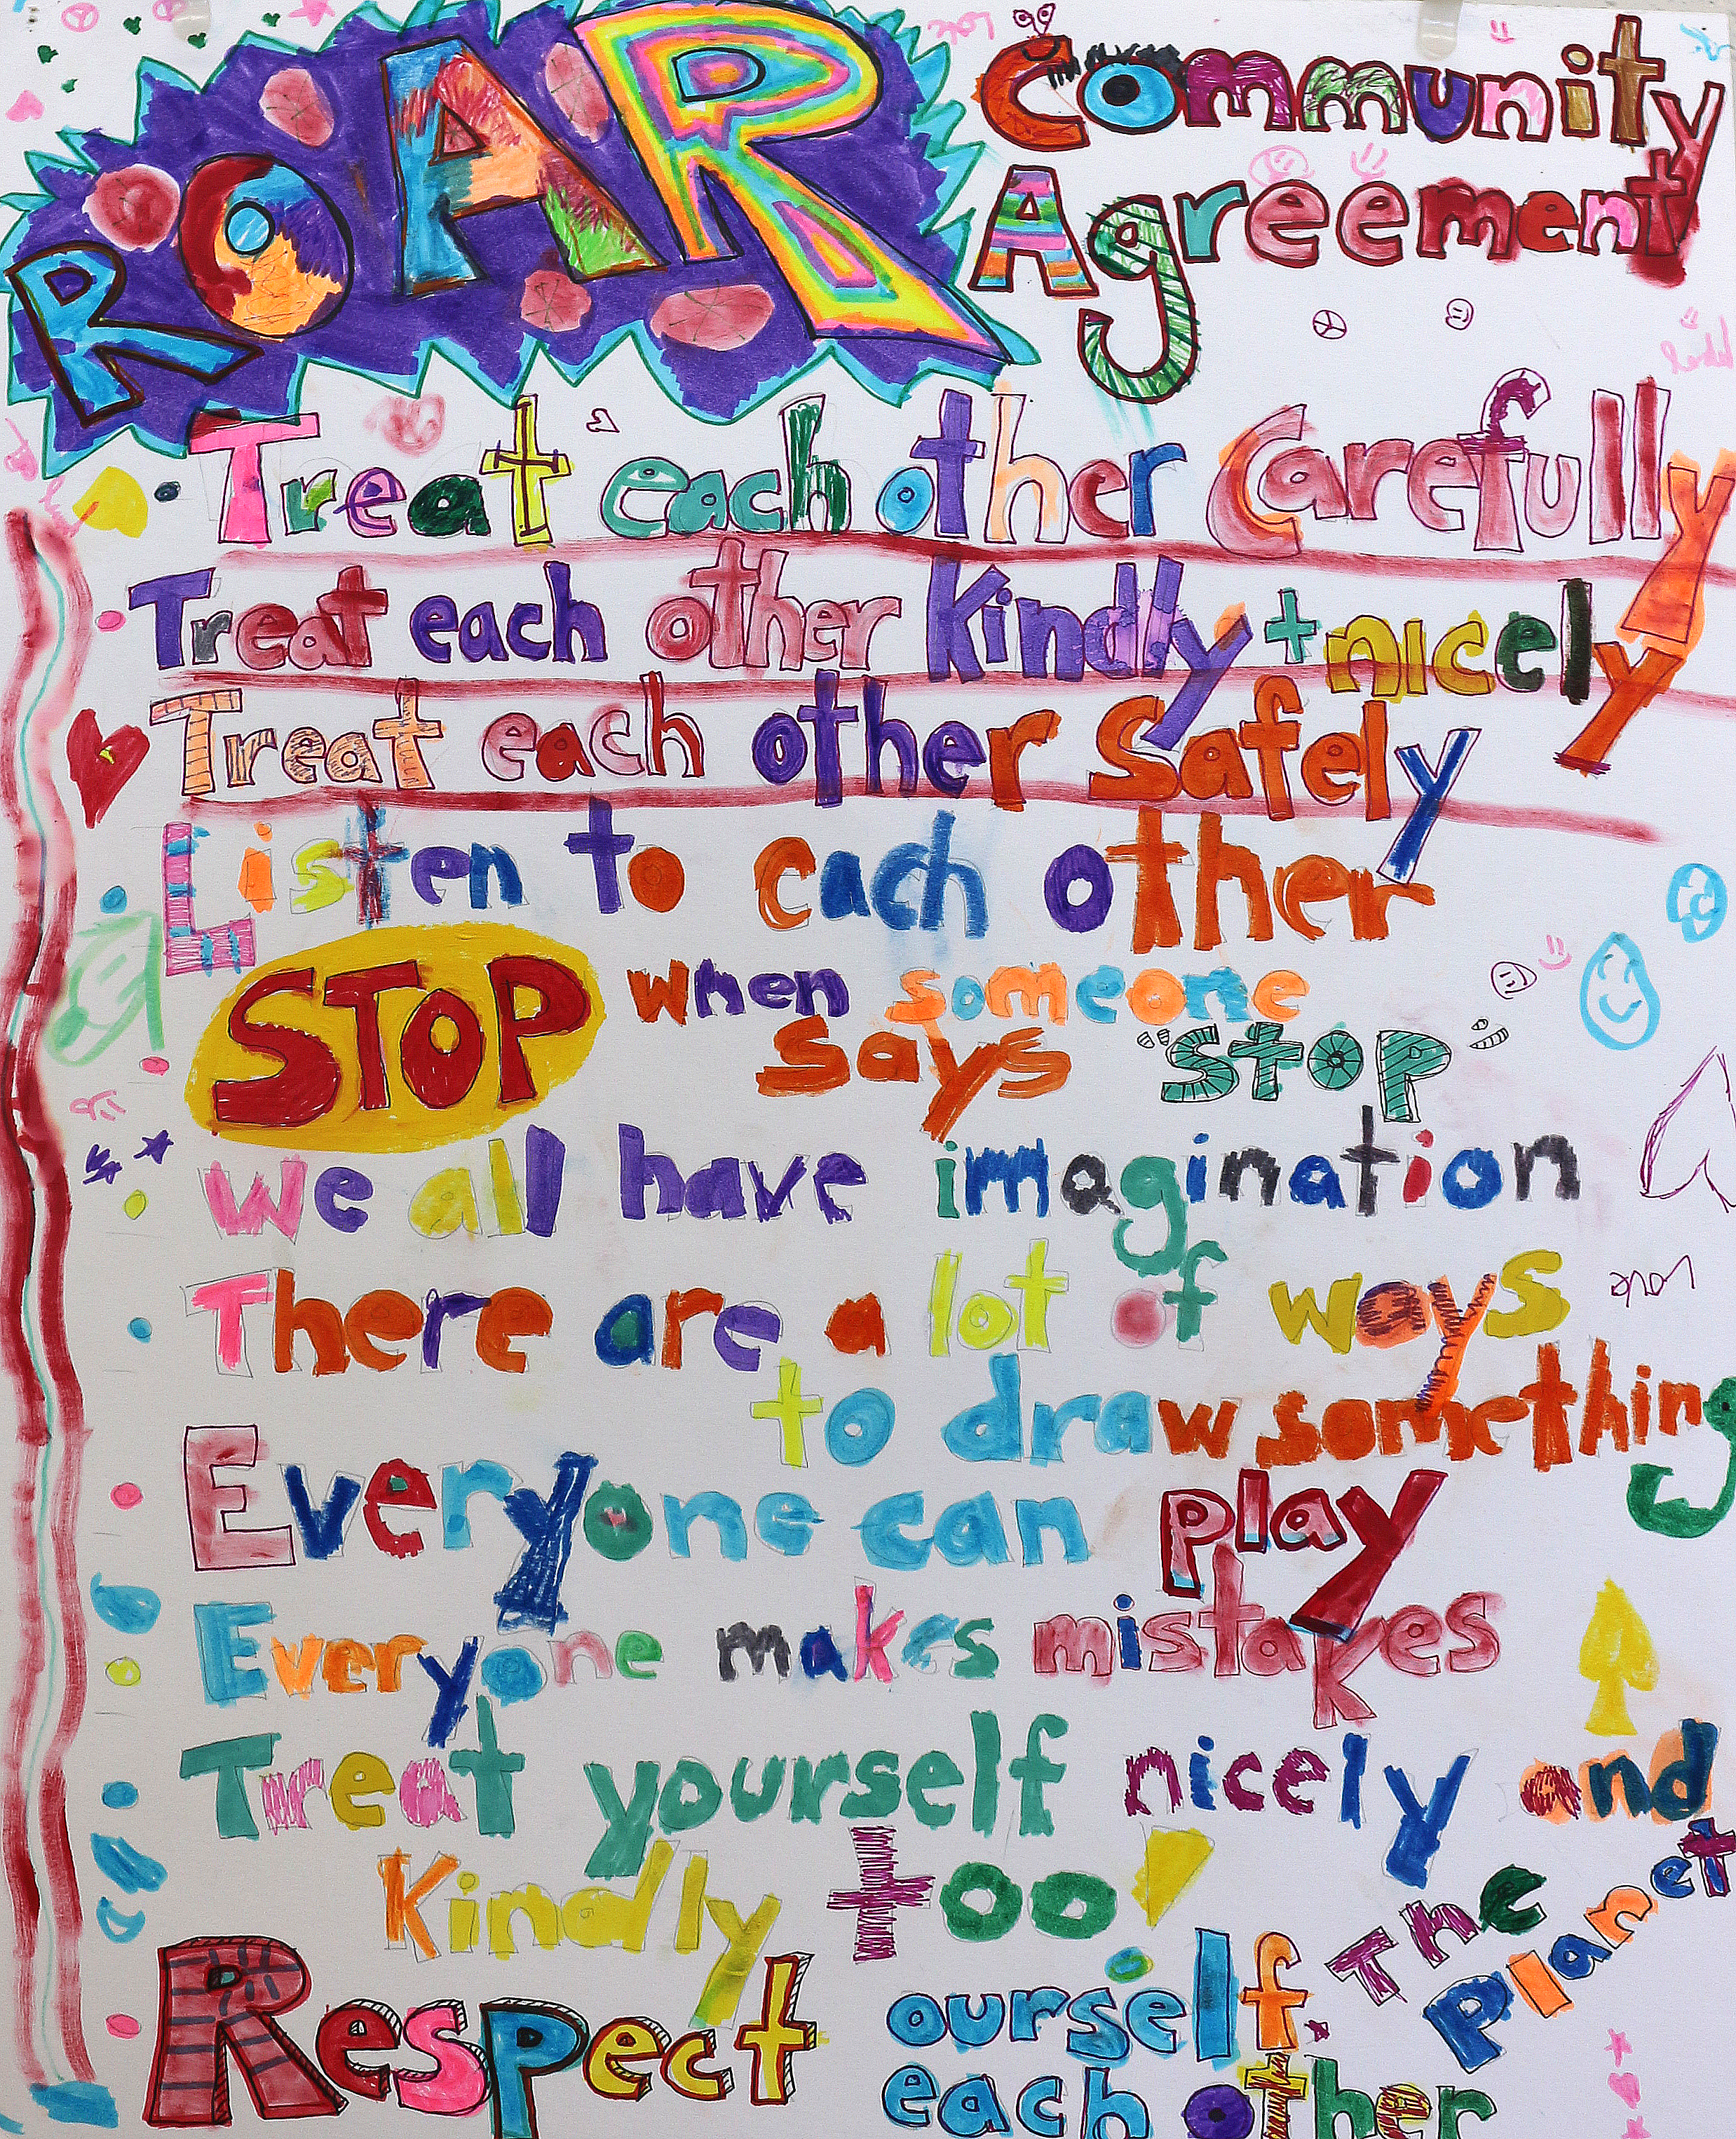 ROAR Community
Agreement
Treat each other Carefully
Treat each other Kindly + nicely
Treat each other safely
Listen to each other
STOP when someone
says "STOP"
We all have imagination
There are a lot of ways
to draw something
Everyone can play
Everyone makes mistakes
Treat yourself nicely and
Kindly too
Respect ourself. The Planet
each other